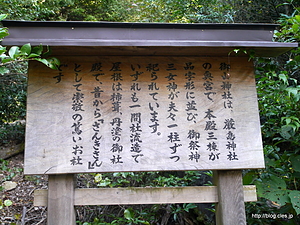 御山神社は、厳島神社
の奥宮で、本殿三棟が
品字形に並び、御祭神
三女神が夫々一柱ずつ
祀られています。
いずれも一間社流造で
屋根は柿葺、丹塗の御社
殿で、昔から「さんきさん」
として崇敬の篤いお社
です。
http://blog.cles.jp